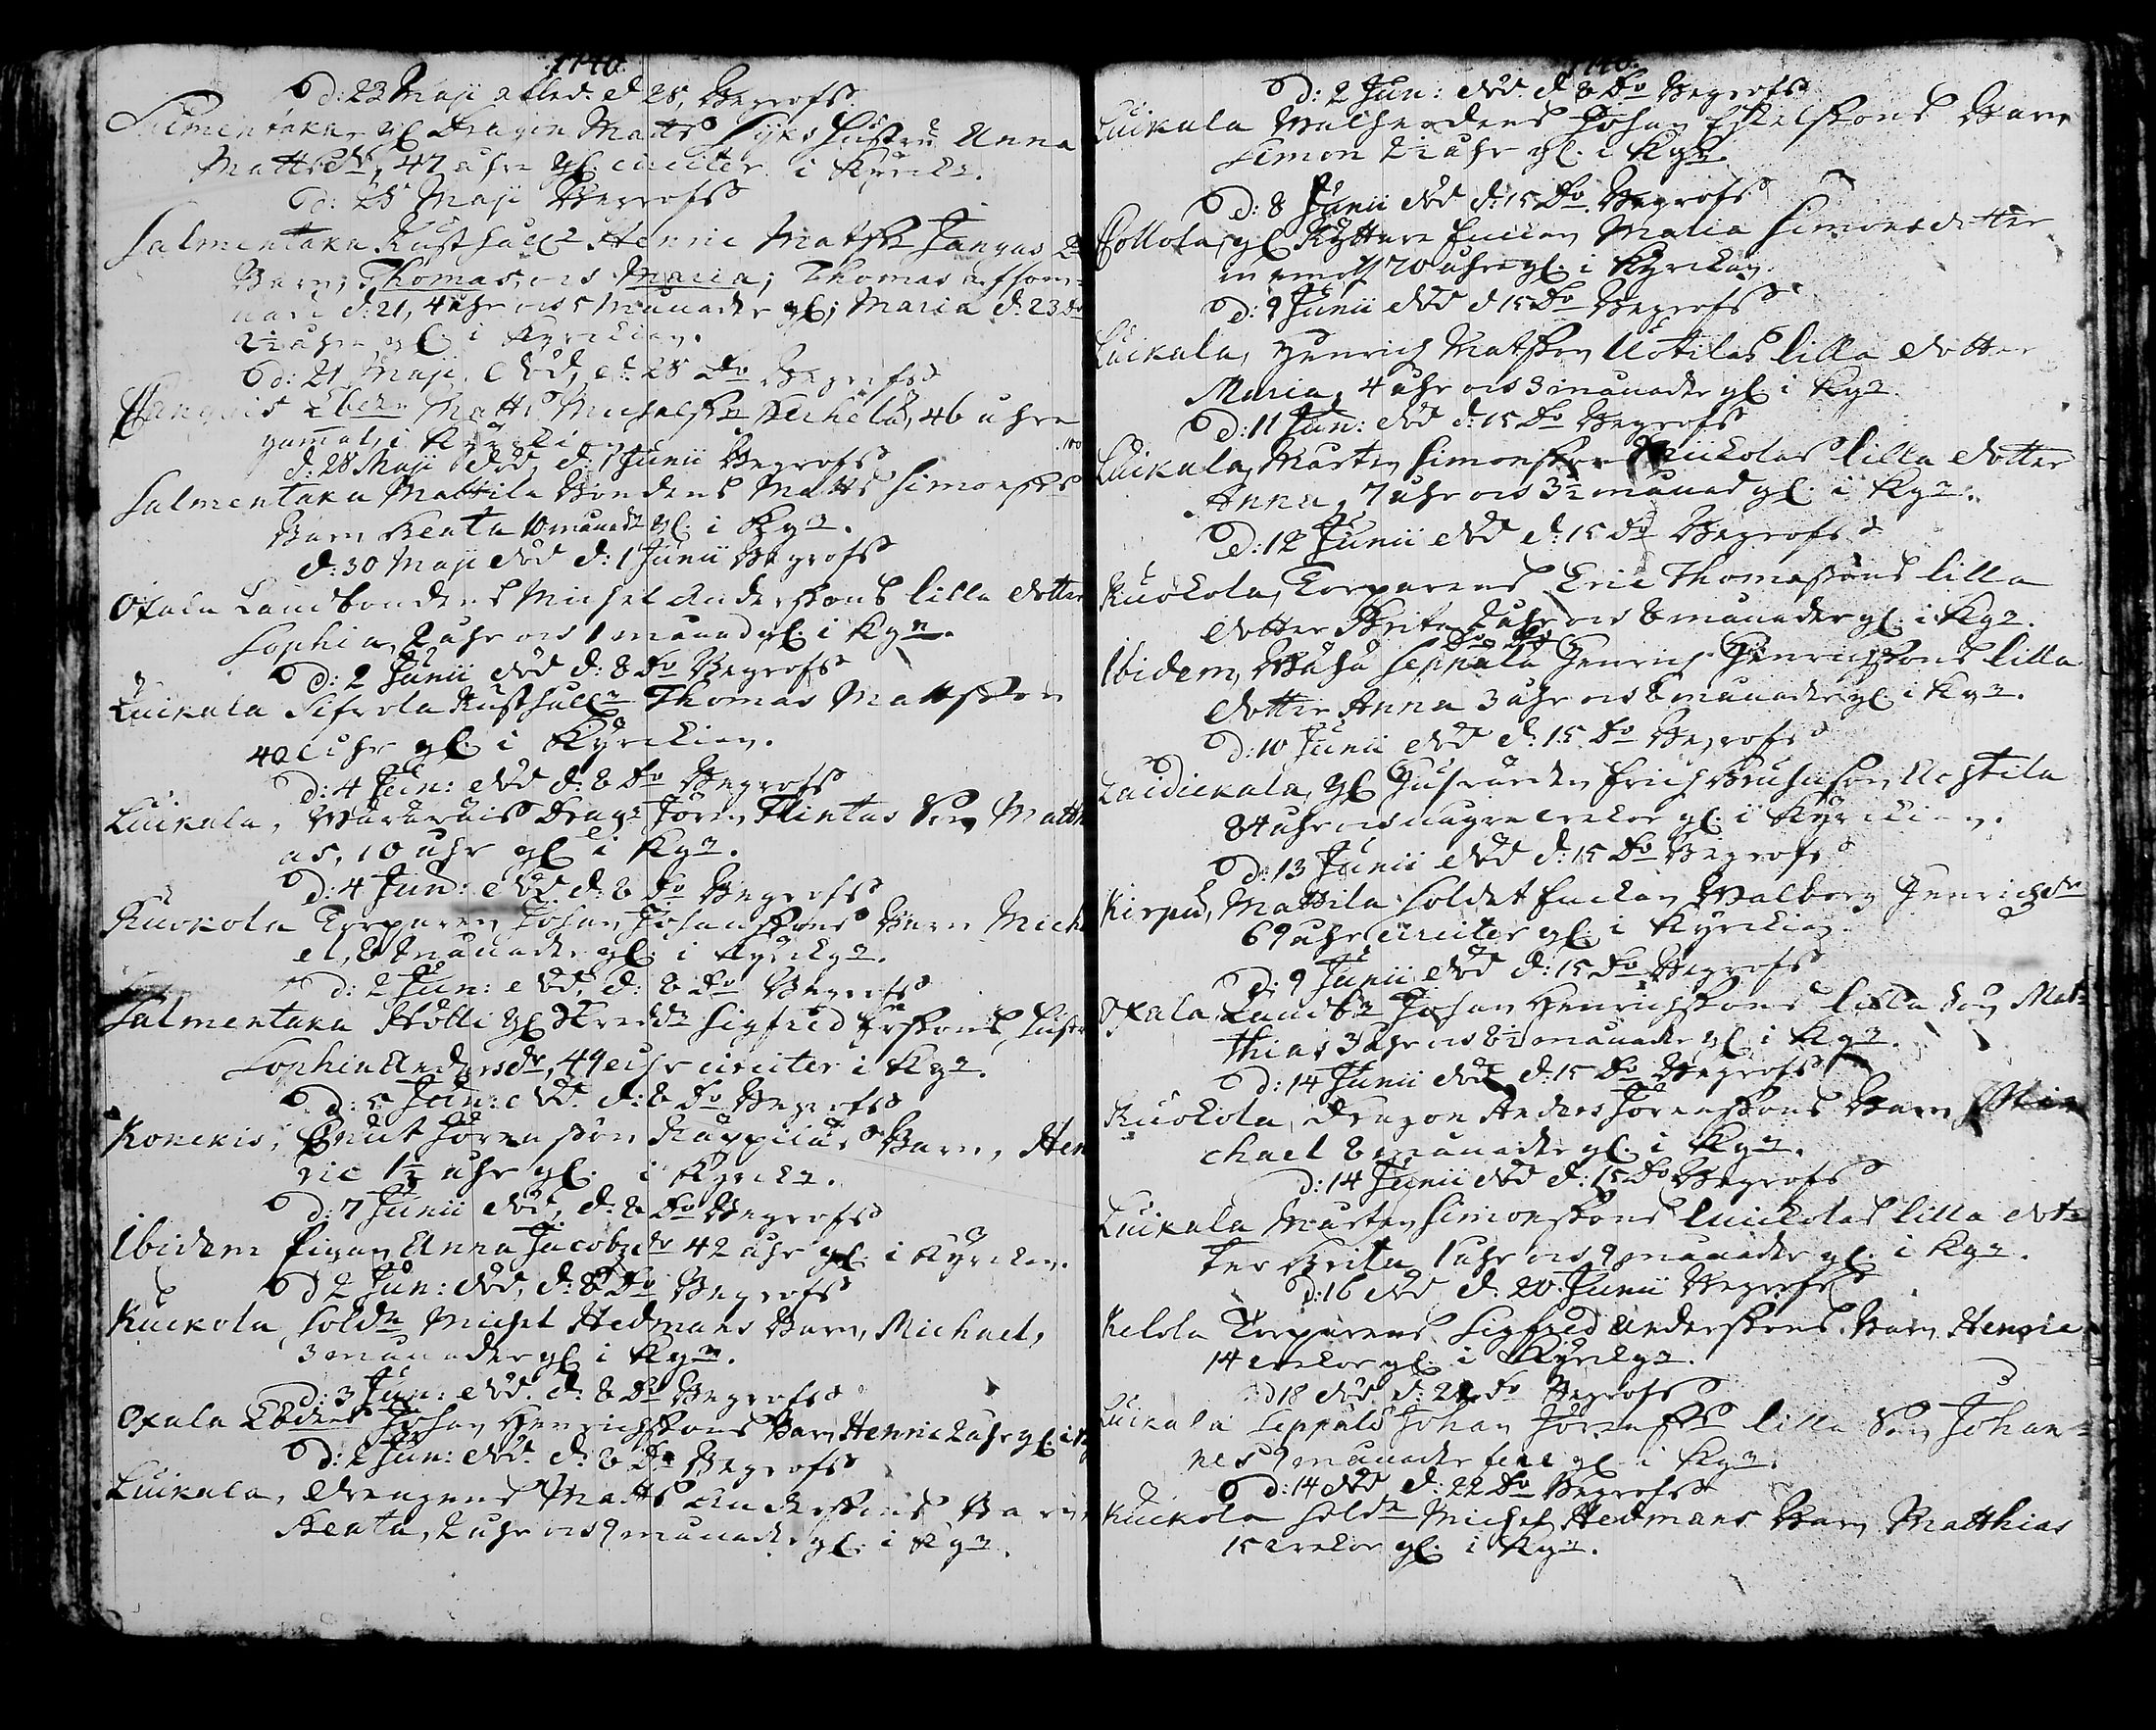 1740.
d: 23 Maji afled. d 28, Begrofs.
Salmentaka gl Dragon Matts Hustru Anna
Mattsdr, 47 åhr gl circiter i Kyrck:
d: 28 Maji Begrofs
Salmentaka Rusthåll Henric Matss Jangas 2
Barn, Thomas, och Maria; Thomas afsom-
nade d: 21, 4 åhr och 5 månader gl; Maria d: 23 do
2½ åhr gl. i Kyrckian.
d: 21 Maji död, d: 28 do Begrofs
Matts Michelss Heickelä, 46 åhr
gammal, i Kyrckian
d: 28 Maji död, d: 1 Junii Begrofs
Salmentaka Mattila Bondens Matts Simonss
Barn Beata 10 månad gl. i Kgn.
d: 30 Maji död d: 1 Junii Begrofs
Oxala Landbondens Michel Anderssons lilla dotter
Sophia, 2 åhr och 1 månad gl. i Kgn.
d: 2 Junii död d: 8 do Begrofs
Luikala Sifvola Rusthåll Thomas Mattsson
40 åhr gl. i Kyrckian.
d: 4 Jun: död d: 8 do Begrofs
Luikala, Drag: Jöran Flintas Son Matth
as, 10 åhr gl i Kgn.
d: 4 Jun: död d: 8 do Begrofs
Kuokola Torparen Johan Johanssons Barn Mich
el, 8 månader gl. i Kyrckgn.
d: 2 Jun: död, d: 8 do Begrofs
Salmentaka Hölli gl Skredd Sigfred Erssons Hustr
Sophia Andersdr, 49 åhr circiter i Kgn.
d: 5 Jun: död. d: 8 do Begrofs
Konickis, Knut Jöransson Kappilas Barn, Hen
ric 1½ åhr gl. i Kyrckn.
d: 7 Junii död, d: 8 do Begrofs
Ibidem Pigan Anna Jacobsdr 42 åhr gl. i Kyrckn.
d 2 Jun: död, d: 8 do Begrofs
Kuokola Soldn Michel Hedmans Barn, Michael,
3 månader gl. i Kgn.
d: 3 Jun: död. d: 8 do Begrofs
Oxala Lbdens Johan Henrichssons Barn Henric 2 åhr gl. i Kg
d: 2 Jun: död. d: 8 do Begrofs
Luikala, Drengens Matts Anderssons Barn
Beata, 2 åhr och 9 månader gl. i Kgn.
1740.
d: 2 Jun: död. d 8 do Begrofs
Luikala Johan Eskelssons Barn
Simon 2½ åhr gl. i Kgn.
d: 8 Junii död d: 15 do Begrofs
gl Ryttare Enckian Malin Simonsdotter
in emoth 70 åhr gl. i Kyrckian.
d: 9 Junii död d 15 do Begrofs
Luikala, Henrich Matsson Uotilas lilla dotter
Maria, 4 åhr och 3 månader gl i Kgn.
d: 11 Jun: död d: 15 do Begrofs
Luikala, Mårten Simonsson Nickolas lilla dotter
Anna, 7 åhr och 3½ månad gl. i Kgn.
d: 12 Junii död d: 15 do Begrofs
Kuokola, Torparens Eric Thomassons lilla
dotter Brita 2 åhr och 8 månader gl. i Kgn.
Ibidem, Seppälä Henrich Henrichssons lilla
dotter Anna 3 åhr och 8 månader gl. i Kgn.
d: 10 Junii död d: 15 do Begrofs
gl Husbonden Erich
84 åhr och några veckor gl. i Kyrckian.
d: 13 Junii död d: 15 do Begrofs
Kirpu, Mattila Soldat Enckan Walborg Henrichsdr
69 åhr circiter gl. i Kyrckian.
d: 9 Junii död d: 15 do Begrofs
Oxala Landbn Johan Henrichssons lilla Son Mat-
thias 3 åhr och 8½ månader gl i Kgn.
d: 14 Junii död d: 15 do Begrofs
Kuokola, Drengen Anders Jöranssons Barn Mi
chael 8 månader gl. i Kgn.
d: 14 Junii död d: 15 do Begrofs
Luikala Mårten Simonssons Nickolas lilla dot-
ter Brita 1 åhr och 9 månader gl. i Kgn.
d: 16 död d. 20 Junii Begrofs
Kelola Torparens Sigfred Anderssons Barn Henric
14 veckor gl. i Kyrckgn.
d 18 död. d: 22 do Begrofs
Luikala Seppälä Johan Jöranss lilla Son Johan-
nes 9 månader gl i Kgn.
d: 14 död d: 22 do Begrofs
Kuokola Soldn Michel Hedmans Barn Matthias
15 veckor gl. i Kgn.